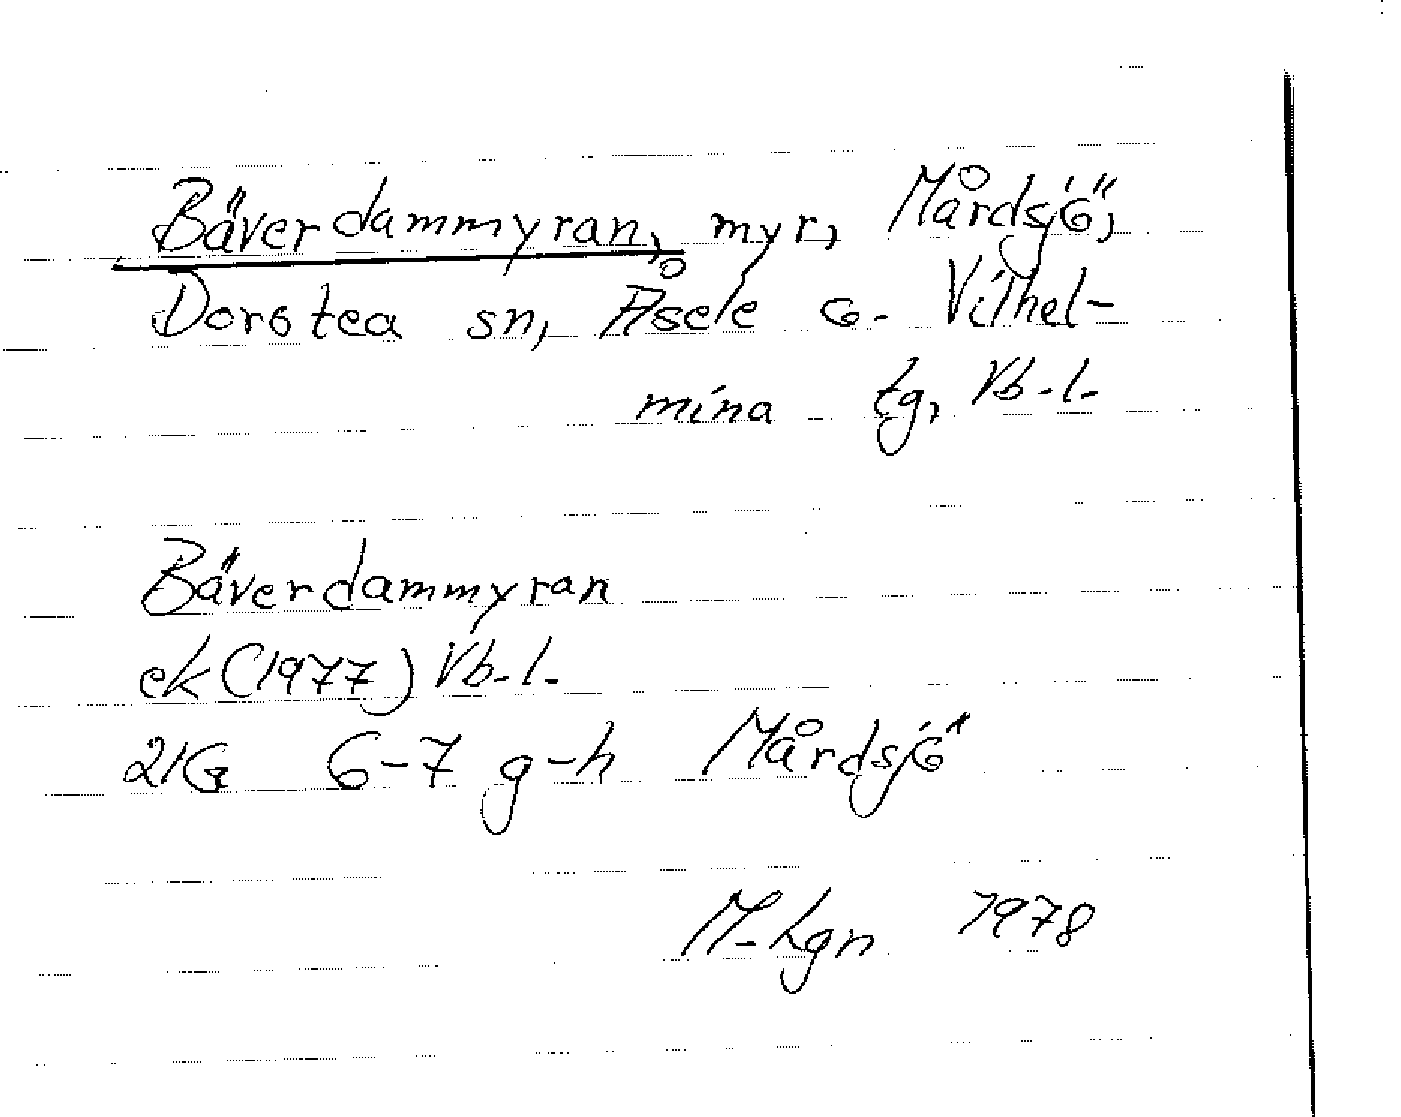 Bäverdammyran, myr, Mårdsjö,
Dorotea sn, Åsele o. Vilhel-
mina tg, Vb.l.
Bäverdammyran
ek (1977) Vb.l.
21G 6-7 g-h Mårdsjö
M. Lgn 1978